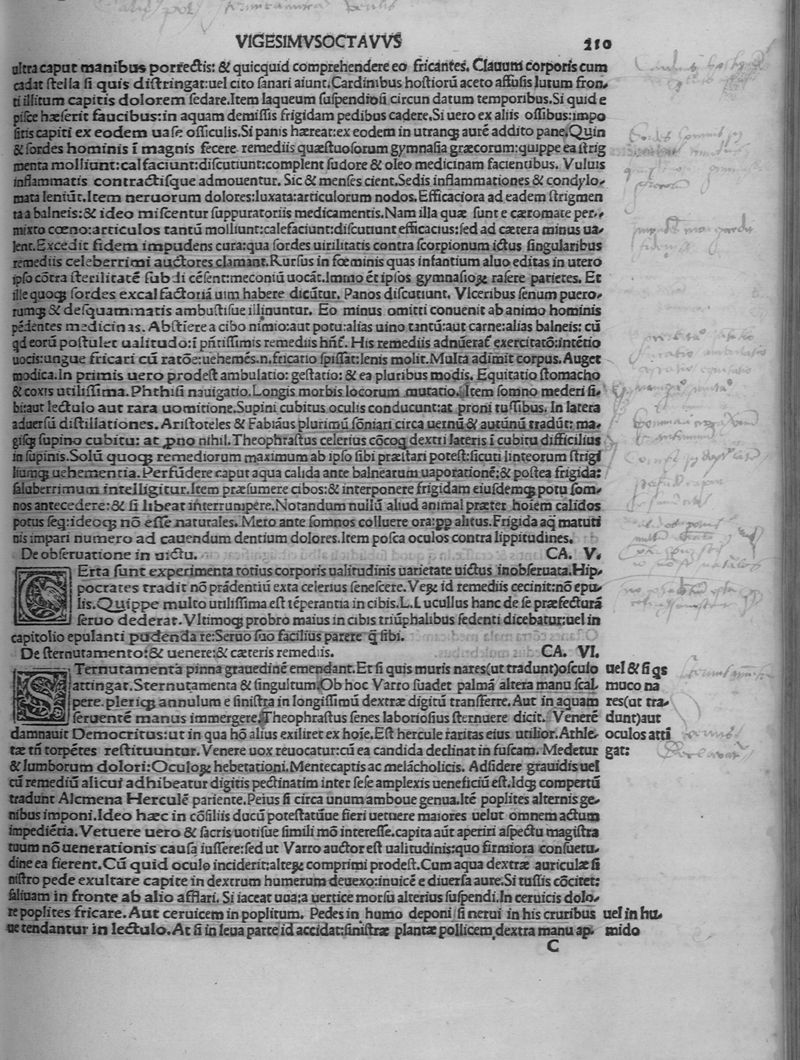 VIGESIMVSOCTAVVS 210
ultra caput manibus porrectis: & quicquid comprehendere eo fricantes. Clauum corporis cum
cadat stella si quis distringat: uel cito sanari aiunt. Cardinibus hostiorū aceto affusis lutum fron-
ti illitum capitis dolorem sedare. Item laqueum suspendiosi circun datum temporibus. Si quid e
pisce hæserit faucibus: in aquam demissis frigidam pedibus cadere. Si uero ex aliis ossibus: impo
sitis capiti ex eodem uase officulis. Si panis hæreat: ex eodem in utranqꝫ aurē addito pane. Quin
& sordes hominis ī magnis fecere remediis quæstuosorum gymnasia græcorum: quippe ea strig
menta molliunt: calfaciunt: discutiunt: complent sudore & oleo medicinam facientibus. Vuluis
inflammatis contractisque admouentur. Sic & menses cient. Sedis inflammationes & condylo-
mata leniūt. Item neruorum dolores: luxata: articulorum nodos. Efficaciora ad eadem strigmen
ta a balneis: & ideo miscentur suppuratoriis medicamentis. Nam illa quæ sunt e cæromate per-
mixto cœno: articulos tantū molliunt: calefaciunt: discutiunt efficacius: sed ad cætera minus ua-
lent. Excedit fidem impudens cura: qua sordes uirilitatis contra scorpionum ictus singularibus
remediis celeberrimi auctores clamant. Rursus in fœminis quas infantium aluo editas in utero
ipso cōtra sterilitatē subdi cēsent: meconiū uocāt. Immo ēt ipsos gymnasioꝝ rasere parietes. Et
ille quoqꝫ sordes excalfactoriā uim habere dicūtur. Panos discutiunt. Vlceribus senum puero-
rumqꝫ & desquammatis ambustisue illinuntur. Eo minus omitti conuenit ab animo hominis
pēdentes medicinas. Abstiere a cibo nimio: aut potu: alias uino tantū: aut carne: alias balneis: cū
qd eorū postulet ualitudo: ī pñtissimis remediis hñt. His remediis adnūerat exercitatō: intētio
uocis: ungue fricari cū ratōe: uehemēs.n. fricatio spissat: lenis molit. Multa adimit corpus. Auget
modica. In primis uero prodest ambulatio: gestatio: & ea pluribus modis. Equitatio stomacho
& coxis utilissima. Phthisi nauigatio. Longis morbis locorum mutatio. Item somno mederi si-
bi: aut lectulo aut rara uomitione. Supini cubitus oculis conducunt: at proni tussibus. In latera
aduersū distillationes. Aristoteles & Fabiāus plurimū sōniari circa uernū & autūnū tradūt: ma-
gisqꝫ supino cubitu: at ꝓno nihil. Theophrastus celerius cōcoq dextri lateris ī cubitu difficilius
in supinis. Solū quoqꝫ remediorum maximum ab ipso sibi præstari potest: sicuti linteorum strigi
liumqꝫ uehementia. Perfūdere caput aqua calida ante balnearum uaporationē: & postea frigida:
saluberrimum intelligitur. Item præsumere cibos: & interponere frigidam eiusdemqꝫ potu som-
nos antecedere: & si libeat interrumpere. Notandum nullū aliud animal præter hoiem calidos
potus seq: ideoqꝫ nō esse naturales. Mero ante somnos colluere ora: ꝓp alitus. Frigida aq matuti
nis impari numero ad cauendum dentium dolores. Item posca oculos contra lippitudines.
De obseruatione in uictu. CA. V.
CErta sunt experimenta totius corporis ualitudinis uarietate uictus inobseruata. Hip-
pocrates tradit nō prādentiū exta celerius senescere. Veꝝ id remediis cecinit: nō epu-
lis. Quippe multo utilissima est tēperantia in cibis. L. Lucullus hanc de se præfecturā
seruo dederat. Vltimoqꝫ probro maius in cibis triūphalibus sedenti dicebatur: uel in
capitolio epulanti pudenda re: Seruo suo facilius parere q̄ sibi.
De sternutamento: & uenere: & cæteris remediis. CA. VI.
STernutamenta pinna grauedinē emendant. Et si quis muris nares (ut tradunt) osculo
attingat. Sternutamenta & singultum. Ob hoc Varro suadet palmā altera manu scal-
pere. pleriqꝫ annulum e sinistra in longissimū dextræ digitū transferre. Aut in aquam
feruentē manus immergere. Theophrastus senes laboriosius sternuere dicit. Venerē
damnauit Democritus: ut in qua hō alius exiliret ex hoie. Est hercule raritas eius utilior. Athle-
tæ tñ torpētes restituuntur. Venere uox reuocatur: cū ea candida declinat in fuscam. Medetur
& lumborum dolori: Oculoꝝ hebetationi. Mentecaptis ac melācholicis. Adsidere grauidis uel
cū remediū alicui adhibeatur digitis pectinatim inter sese amplexis ueneficiū est. Idqꝫ compertū
tradunt Alcmena Herculē pariente. Peius si circa unum amboue genua. Itē poplites alternis ge-
nibus imponi. Ideo hæc in cōsiliis ducū potestatūue fieri uetuere maiores uelut omnem actum
impediētia. Vetuere uero & sacris uotisue simili mō interesse. capita aūt aperiri aspectu magistra
tuum nō uenerationis causa iussere: sed ut Varro auctor est ualitudinis: quo firmiora consuetu-
dine ea fierent. Cū quid oculo inciderit: alteꝝ comprimi prodest. Cum aqua dextræ auriculæ si
nistro pede exultare capite in dextrum humerum deuexo: inuicē e diuersa aure. Si tussis cōcitet:
saliuam in fronte ab alio afflari. Si iaceat uua: a uertice morsu alterius suspendi. In ceruicis dolo-
re poplites fricare. Aut ceruicem in poplitum. Pedes in humo deponi si nerui in his cruribus
ue tendantur in lectulo. At si in leua parte id accidat: sinistræ plantæ pollicem dextra manu ap-
uel & si qs
muco na
res (ut tra-
dunt) aut
oculos atti
gat:
uel in hu-
mido
C